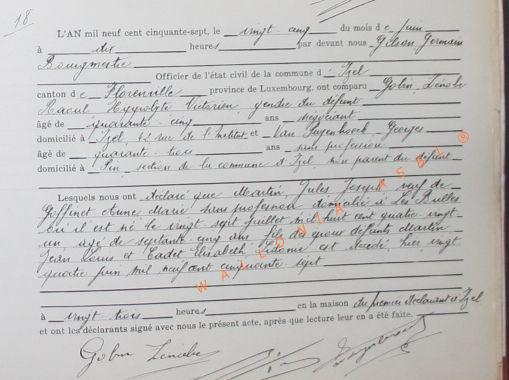 18
L'AN mil neuf cent cinquante-sept, le vingt-cinq du mois de juin
à dix heures par devant nous Gilson Germain
Bourgmestre Officier de l'état civil de la commune d' Izel
canton de Florenville province de Luxembourg, ont comparu Gobin, Lénobe
Raoul Hyppolyte Victorien, gendre du défunt
âgé de quarante-cinq ans négociant
domicilié à Izel, rue de l'Institut et Van Georges
âgé de quarante-trois ans sans profession
domicilié à Pin, section de la commune d'Izel, non parent du défunt
Lesquels nous ont déclaré que Martin, Jules Joseph, veuf de
Goffinet Marie sans profession domicilié à Les Bulles
où il est né le vingt sept juillet mil huit cent quatre vingt-
un âgé de septante cinq ans, fils des époux défunts Martin
Jean Louis et Elisabeth est décédé, hier vingt
quatre juin mil neuf cent cinquante-sept
à vingt-trois heures en la maison du premier déclarant à Izel
et ont les déclarants signé avec nous le présent acte, après que lecture leur en a été faite.
WALLONIA ASBL ®